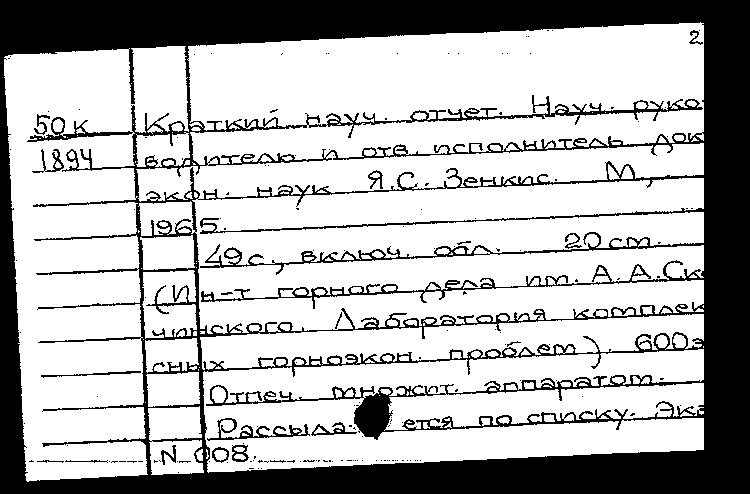 2
50к Краткий науч. отчет. Науч. руко-
1894 водитель и отв. исполнитель док
экон. наук Я.С. Зенкис. М.,
1965.
49с., включ. обл. 20 cm.
(Ин-т горного дела им. А.А.Ско
чинского. Лаборатория комплек
сных горноэкон. проблем). 600э
Отпеч. множит. аппаратом.
Рассылается по списку. Экз
N 008.